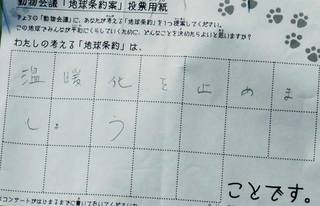 動物会議「地球条約案」投票用紙
きょうの「動物会議」に、あなたが考える「地球条約」を1つ提案してください。
この地球でみんなが平和にくらしていくために、どんなことを決めたらよいと思いますか?
わたしの考える「地球条約」は、
温暖化を止めま
しょう
ことです。
コンサートがはじまるまでに書いておいてください。